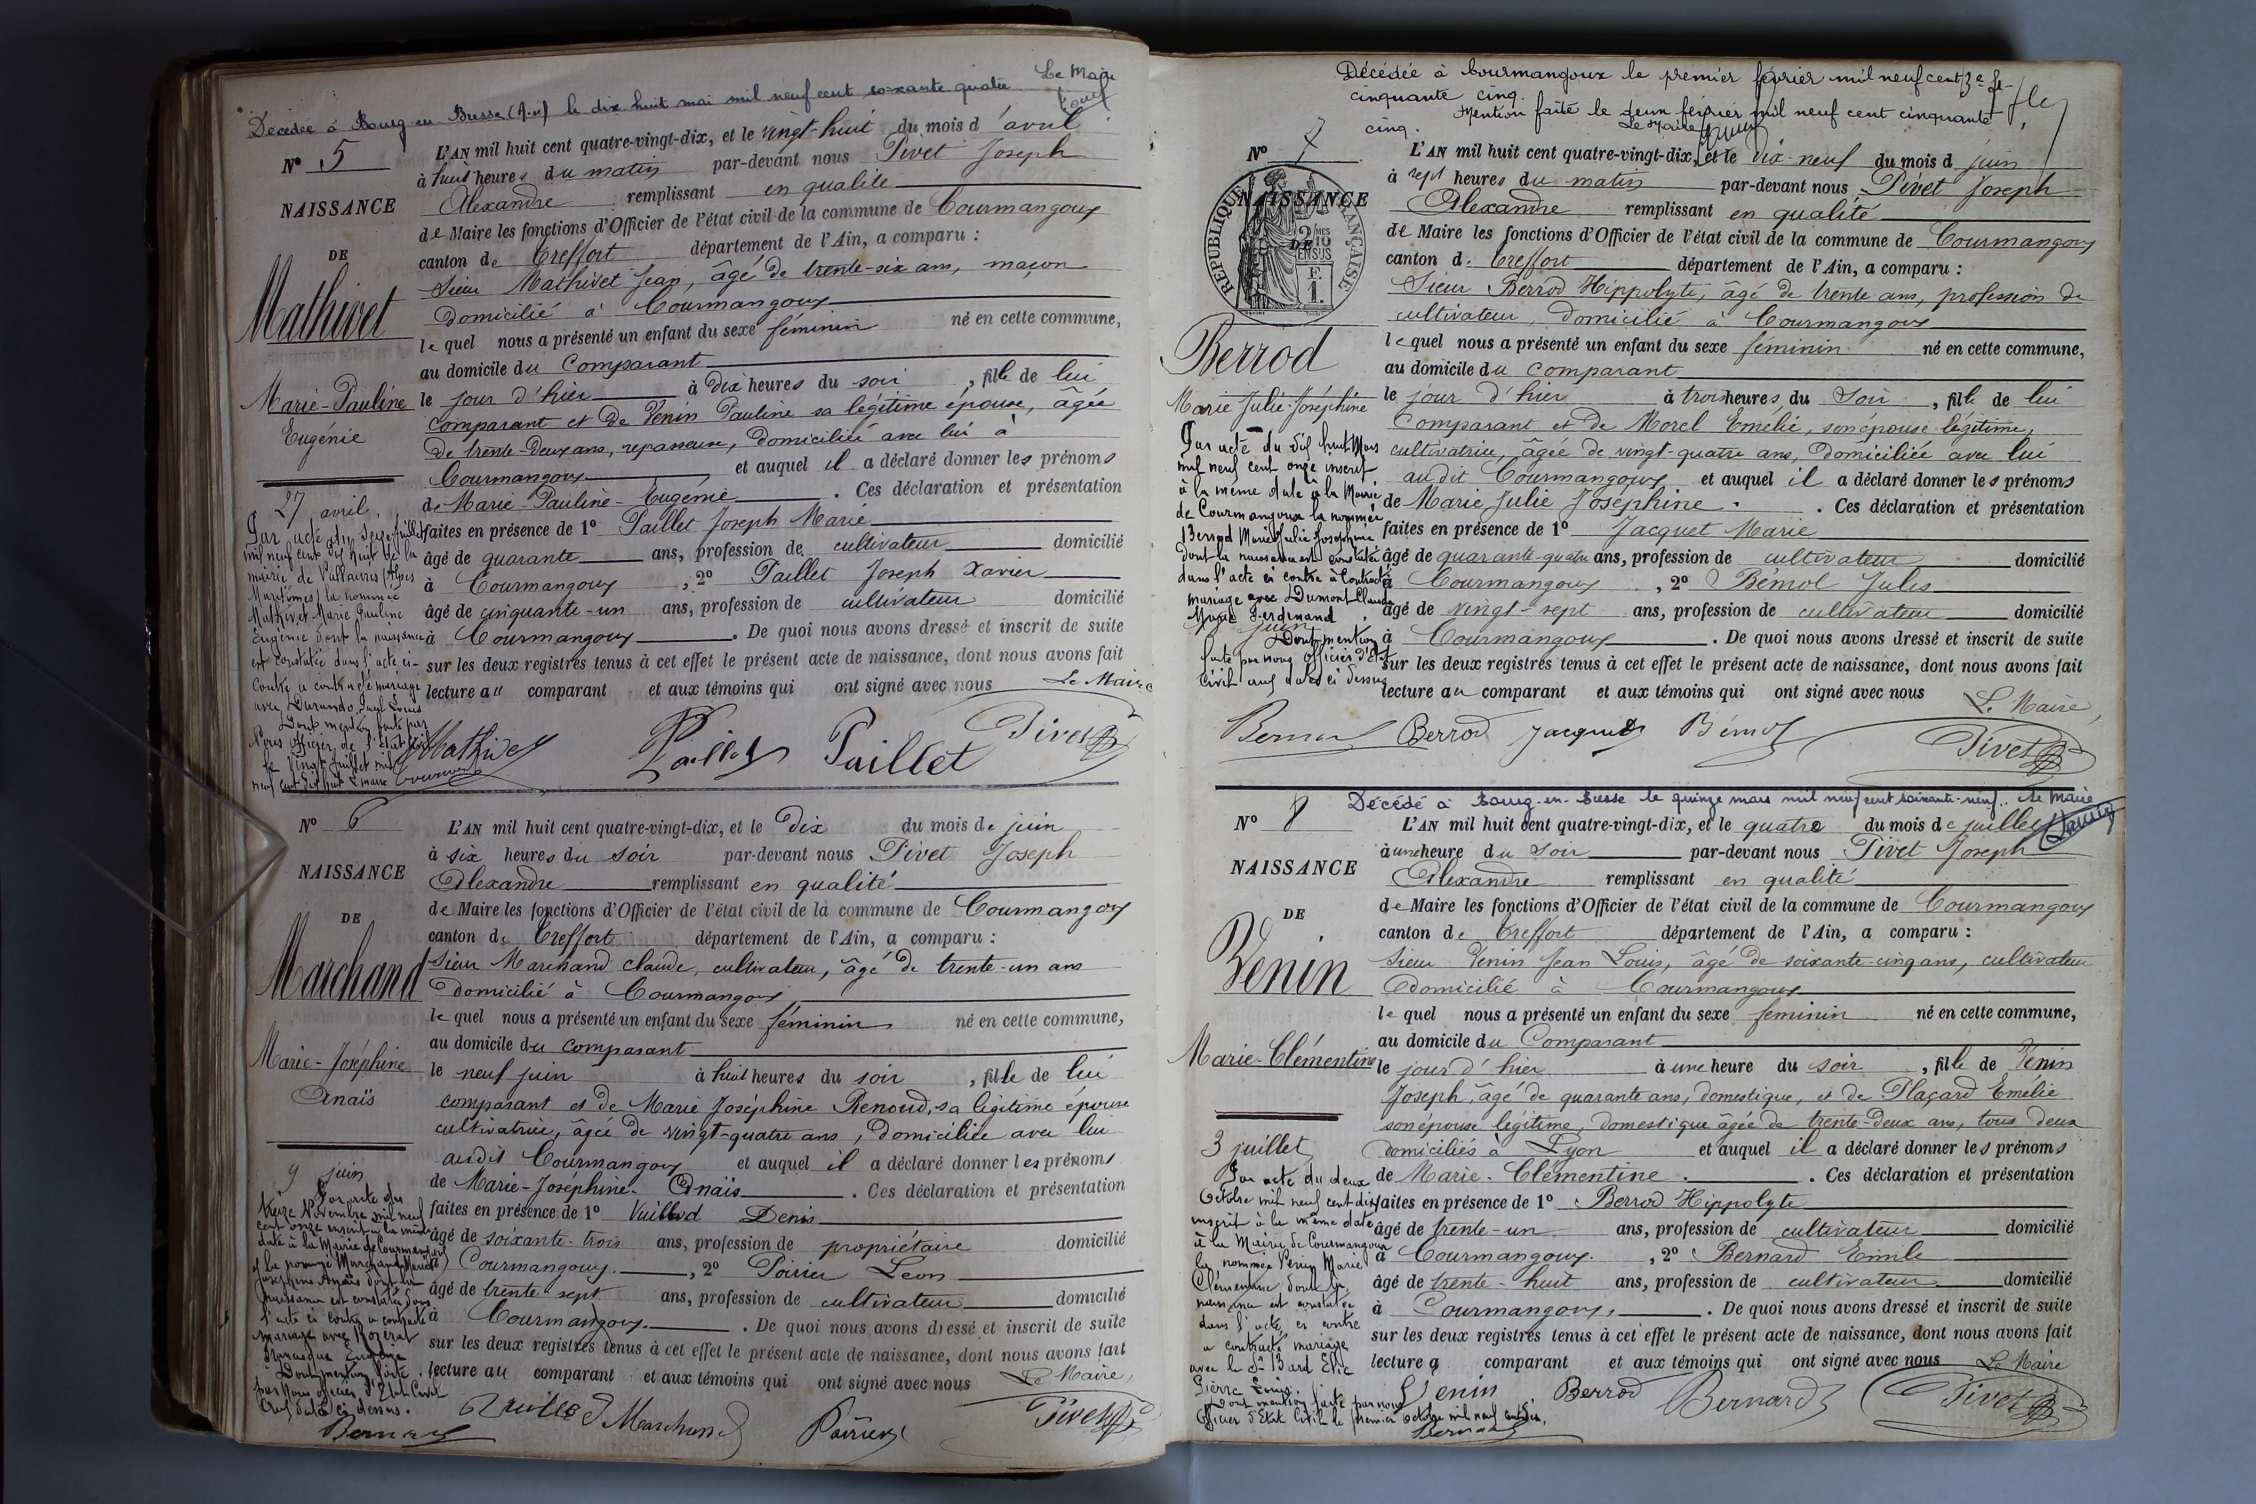 Décédée à Bourg-en-Bresse (Ain) le dix huit mai mil neuf cent soixante quatre Le Maire
Nº 5
NAISSANCE
DE
Mathivet
Marie-Pauline
Eugénie
27 avril
Par acte du seize juillet
mil neuf cent dix huit de la
mairie de Vallauris (Alpes
Maritimes) la nommée
Mathivet Marie Pauline
Eugénie dont la naissance
est constatée dans l'acte ci-
contre a contracté mariage
avec Durando Paul Louis
Dont mention faite par
Nous officier de l'Etat civil
le vingt juillet mil
neuf cent dix huit Le maire
L'AN mil huit cent quatre-vingt-dix, et le vingt-huit du mois d'avril
à huit heures du matin par-devant nous Pivet Joseph
Alexandre remplissant en qualité
de Maire les fonctions d'Officier de l'état civil de la commune de Courmangoux
canton de Treffort département de l'Ain, a comparu :
Sieur Mathivet Jean, âgé de trente-six ans, maçon
domicilié à Courmangoux
lequel nous a présenté un enfant du sexe féminin né en cette commune,
au domicile du comparant
le jour d'hier à dix heures du soir, fille de lui
comparant et de Venin Pauline sa légitime épouse, âgée
de trente-deux ans, repasseuse, domiciliée avec lui à
Courmangoux et auquel il a déclaré donner les prénoms
de Marie-Pauline-Eugénie. Ces déclaration et présentation
faites en présence de 1º Paillet Joseph Marie
âgé de quarante ans, profession de cultivateur domicilié
à Courmangoux, 2º Paillet Joseph Xavier
âgé de cinquante-un ans, profession de cultivateur domicilié
à Courmangoux. De quoi nous avons dressé et inscrit de suite
sur les deux registres tenus à cet effet le présent acte de naissance, dont nous avons fait
lecture au comparant et aux témoins qui ont signé avec nous Le Maire
Mathivet Paillet Paillet Pivet
Nº 6
NAISSANCE
DE
Marchand
Marie-Joséphine
Anaïs
9 juin
Par acte du
treize Novembre mil neuf
cent onze inscrit à la même
date à la Mairie de Courmangoux
la nommée Marchand Marie
Joséphine Anaïs dont la
naissance est constatée dans
l'acte ci contre a contracté
mariage avec
Dont mention faite
par Nous officier d'Etat Civil
aux dates ci dessus.
Bernard
L'AN mil huit cent quatre-vingt-dix, et le dix du mois de juin
à six heures du soir par-devant nous Pivet Joseph
Alexandre remplissant en qualité
de Maire les fonctions d'Officier de l'état civil de la commune de Courmangoux
canton de Treffort département de l'Ain, a comparu :
Sieur Marchand Claude, cultivateur, âgé de trente-un ans
domicilié à Courmangoux
lequel nous a présenté un enfant du sexe féminin né en cette commune,
au domicile du comparant
le neuf juin à huit heures du soir, fille de lui
comparant et de Marie Joséphine Renoud, sa légitime épouse
cultivatrice, âgée de vingt-quatre ans, domiciliée avec lui
audit Courmangoux et auquel il a déclaré donner les prénoms
de Marie-Joséphine-Anaïs. Ces déclaration et présentation
faites en présence de 1º Vuillod Denis
âgé de soixante-trois ans, profession de propriétaire domicilié
à Courmangoux, 2º Poirier Leon
âgé de trente sept ans, profession de cultivateur domicilié
à Courmangoux. De quoi nous avons dressé et inscrit de suite
sur les deux registres tenus à cet effet le présent acte de naissance, dont nous avons fait
lecture au comparant et aux témoins qui ont signé avec nous Le Maire,
Marchand Poirier Pivet
Décédée à Courmangoux le premier février mil neuf cent
cinquante cinq.
Mention faite le deux février mil neuf cent cinquante
cinq. Le Maire
Nº 7
NAISSANCE
DE
RÉPUBLIQUE FRANÇAISE
2/10MES
EN SUS
1 F.
Berrod
Marie Julie Joséphine
Par acte du dix huit Mars
mil neuf cent onze inscrit
à la même date à la Mairie
de Courmangoux la nommée
Berrod Marie Julie Joséphine
dont la naissance est constatée
dans l'acte ci contre a contracté
mariage avec Dumont Claude
Marie Ferdinand
juin
Dont mention
faite par nous Officier d'Etat
Civil aux dates ci dessus
L'AN mil huit cent quatre-vingt-dix, et le dix-neuf du mois d juin
à sept heures du matin par-devant nous Pivet Joseph
Alexandre remplissant en qualité
de Maire les fonctions d'Officier de l'état civil de la commune de Courmangoux
canton de Treffort département de l'Ain, a comparu :
Sieur Berrod Hippolyte, âgé de trente ans, profession de
cultivateur, domicilié à Courmangoux
lequel nous a présenté un enfant du sexe féminin né en cette commune,
au domicile du comparant
le jour d'hier à trois heures du soir, fille de lui
comparant et de Morel Emélie, son épouse légitime,
cultivatrice, âgée de vingt-quatre ans, domiciliée avec lui
audit Courmangoux et auquel il a déclaré donner les prénoms
de Marie Julie Joséphine. Ces déclaration et présentation
faites en présence de 1º Jacquet Marie
âgé de quarante-quatre ans, profession de cultivateur domicilié
à Courmangoux, 2º Bémol Jules
âgé de vingt-sept ans, profession de cultivateur domicilié
à Courmangoux. De quoi nous avons dressé et inscrit de suite
sur les deux registres tenus à cet effet le présent acte de naissance, dont nous avons fait
lecture au comparant et aux témoins qui ont signé avec nous Le Maire,
Bernard Berrod Jacquet Bémol Pivet
Décédé à Bourg-en-Bresse le quinze mars mil neuf cent soixante-neuf. Le Maire
Nº 8
NAISSANCE
DE
Venin
Marie-Clémentine
3 juillet
Par acte du deux
Octobre mil neuf cent dix
inscrit à la même date
à la Mairie de Courmangoux
la nommée Venin Marie
Clémentine dont la
naissance est constatée
dans l'acte ci contre
a contracté mariage
avec le Sr Bard Elie
Pierre Louis.
Dont mention faite par nous
Officier d'Etat Civil le premier Octobre mil neuf cent dix.
Bernard
L'AN mil huit cent quatre-vingt-dix, et le quatre du mois de juillet
à une heure du soir par-devant nous Pivet Joseph
Alexandre remplissant en qualité
de Maire les fonctions d'Officier de l'état civil de la commune de Courmangoux
canton de Treffort département de l'Ain, a comparu :
Sieur Venin Jean Louis, âgé de soixante-cinq ans, cultivateur
domicilié à Courmangoux
lequel nous a présenté un enfant du sexe feminin né en cette commune,
au domicile du Comparant
le jour d'hier à une heure du soir, fille de Venin
Joseph, âgé de quarante ans, domestique, et de Plaçard Emélie
son épouse légitime, domestique âgée de trente-deux ans, tous deux
domiciliés à Lyon et auquel il a déclaré donner les prénoms
de Marie-Clémentine. Ces déclaration et présentation
faites en présence de 1º Berrod Hippolyte
âgé de trente-un ans, profession de cultivateur domicilié
à Courmangoux, 2º Bernard Emile
âgé de trente-huit ans, profession de cultivateur domicilié
à Courmangoux. De quoi nous avons dressé et inscrit de suite
sur les deux registres tenus à cet effet le présent acte de naissance, dont nous avons fait
lecture a comparant et aux témoins qui ont signé avec nous Le Maire
Venin Berrod Bernard Pivet